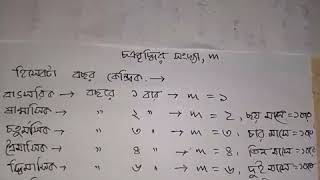 চক্রবৃদ্ধির সংখ্যা, m
হিসেবটা বছর কেন্দ্রিক. →
বাৎসরিক → বছরে ১ বার → m = ১
ষান্মাসিক → " ২ " → m = 2, ছয় মাসে = ১বার
চতুর্মাসিক → " ৩ " → m = ৩, চার মাসে = ১বার
ত্রৈমাসিক → " ৪ " → m = ৪, তিন মাসে = ১বার
দ্বিমাসিক → " ৬ " → m = ৬, দুই মাসে = ১বার